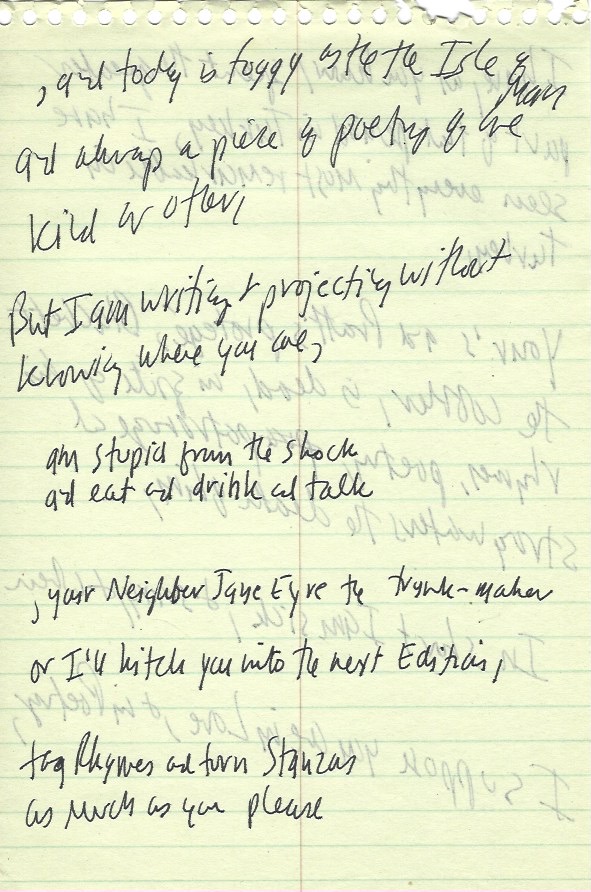 , and today is foggy as the the Isle of
Man
and always a piece of poetry of one
kind or other,
But I am writing & projecting without
knowing where you are,
am stupid from the shock
and eat and drink and talk
, your Neighbor Jane Eyre the trunk-maker
or I'll hitch you into the next Edition,
tag Rhymes and turn Stanzas
as much as you please